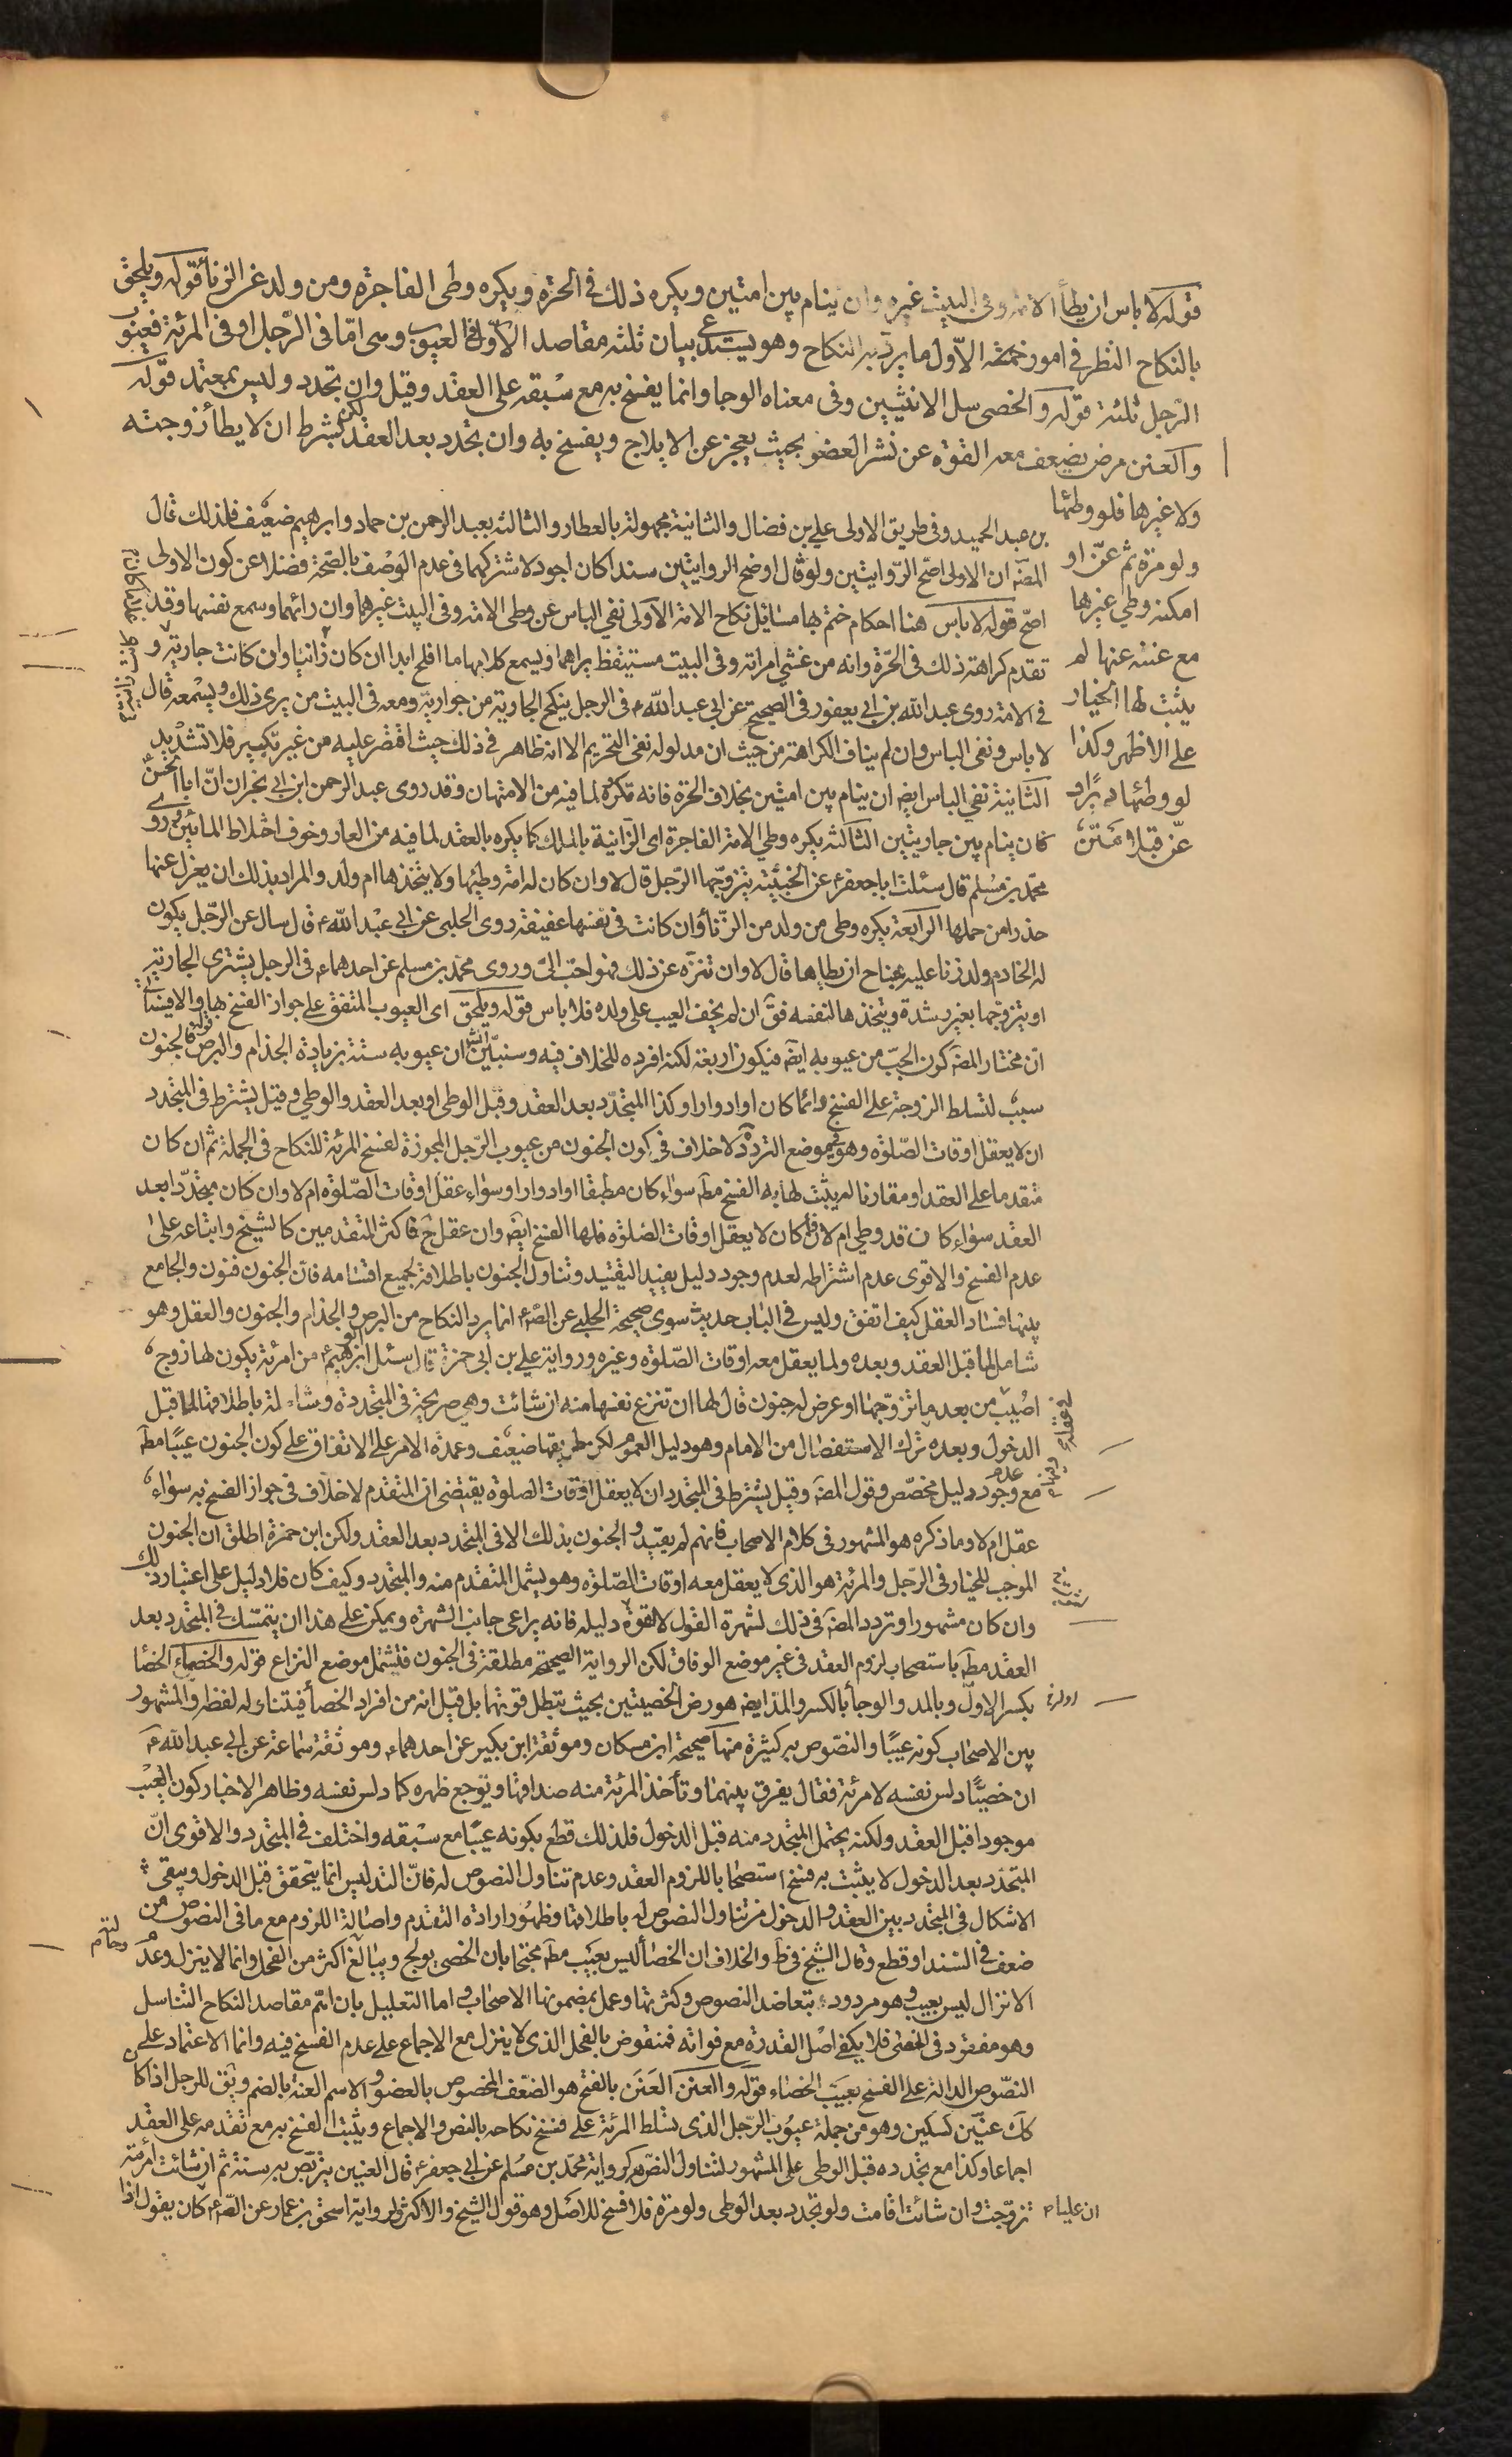 قوله لا باس ان يطأ الامة وفى البيت غيره وان ينام بين امتين ويكره ذلك فى الحرة ويكره وطى الفاجرة ومن ولد من الزنا قوله ويلحق
بالنكاح النظر فى امور خمسة الاول ما يرد به النكاح وهو يستدعى بيان ثلثة مقاصد الاول فى العيوب وهى امّا فى الرّجل او فى المرئة فعيوب
الرّجل ثلثة قوله والخصى سل الانثيين وفى معناه الوجا وانما يفسخ به مع سبقه على العقد وقيل وان تجدد وليس بمعتمد قوله
والعنن مرض يضعف معه القوة عن نشر العضو بحيث يعجز عن الايلاج ويفسخ به وان تجدد بعد العقد لكن بشرط ان لا يطأ زوجته
ولا غيرها فلو وطئها
ولو مرة ثم عنّ او
امكنه وطى غيرها
مع عننه عنها لم
يثبت لها الخيار
على الاظهر وكذا
لو وطئها دبرًا و
عنّ قبلا
بن عبد الحميد وفى طريق الاولى على بن فضال والثانية مجهولة بالعطار والثالثة بعبد الرحمن بن حماد وابرهيم ضعيف فلذلك قال
المصّ ان الاولى اصّح الرّوايتين ولو قال اوضح الروايتين سندا كان اجود لاشتركهما فى عدم الوصف بالصّحة فضلا عن كون الاولى
اصّح قوله لا باس هنا احكام ختم بها مسائل نكاح الامة الاولى نفى الباس عن وطى الامة وفى البيت غيرهما وان رائهما وسمع نفسها وقد
تقدم كراهة ذلك فى الحرّة وانه من غشى امراته وفى البيت مستيقظ يراهما ويسمع كلامهما ما افلح ابدا ان كان زانيا وان كانت جارية و
فى الامة روى عبد الله بن ابى يعفور فى الصحيح عن ابى عبد الله ع فى الرجل ينكح الجارية من جواريه ومعه فى البيت من يرى ذلك ويسمعه قال
لا باس ونفى الباس وان لم يناف الكراهة من حيث ان مدلوله نفى التحريم الا انه ظاهر فى ذلك حيث اقتصر عليه من غير نكير فلا تشديد
الثانية نفى الباس ايضه ان ينام بين امتين بخلاف الحرة فانه تكره لما فيه من الامتهان وقد روى عبد الرحمن ابن ابى نجران انّ ابا الحسن
كان ينام بين جاريتين الثالثة يكره وطى الامة الفاجرة اى الزانية بالملك كما يكره بالعقد لما فيه من العار وخوف اختلاط المائين وروى
محمّد بن مسلم قال سئلت ابا جعفر ع عن الخبيثة يتزوجها الرّجل قال لا وان كان له امة وطئها ولا يتخذها ام ولد والمراد بذلك ان يعزل عنها
حذرا من حملها الرابعة يكره وطى من ولد من الزّنا وان كانت فى نفسها عفيفة روى الحلبى عن ابى عبد الله ع قال سال عن الرّجل يكون
له الخادم ولد زنا عليه جناح ان يطاها قال لا وان تنزّه عن ذلك فهو احب الىّ وروى محمّد بن مسلم عن احدهما ع فى الرجل يشترى الجارية
او يتزوّجها بغير رشدة ويتخذها لنفسه فقّ ان لم يخف العيب على ولده فلا باس قوله ويلحق اى العيوب المتفق على جواز الفسخ بها والا فسياتى
انّ مختار المصّ كون الجبّ من عيوبه ايضه فيكون اربعة لكنه افرده للخلاف فيه وسنبيّن ان عيوبه ستة بزيادة الجذام والبرص قوله فالجنون
سبب لتسلط الزوجة على الفسخ دائما كان او ادوارا وكذا المتجدّد بعد العقد وقبل الوطى او بعد العقد والوطى وقيل يشترط فى المتجدد
ان لا يعقل اوقات الصّلوة وهو فى موضع التردّد لا خلاف فى كون الجنون من عيوب الرّجل المجوزة لفسخ المرئة للنكاح فى الجملة ثم ان كان
متقدما على العقد او مقارنا له يثبت لها به الفسخ مطّ سواء كان مطبقا او ادوارا وسواء عقل اوقات الصّلوة ام لا وان كان متجدّدا بعد
العقد سواء كان قد وطى ام لا فان كان لا يعقل اوقات الصّلوة فلها الفسخ ايضه وان عقل حّ فاكثر المتقدمين كالشيخ واتباعه على
عدم الفسخ والاقوى عدم اشتراطه لعدم وجود دليل يفيد التقييد وتناول الجنون باطلاقه لجميع اقسامه فانّ الجنون فنون والجامع
بينها فساد العقل كيف اتفق وليس فى الباب حديث سوى صحيحة الحلبى عن الصّ ع انما يرد النكاح من البرص والجذام والجنون والعفل وهو
شامل لما قبل العقد وبعده ولما يعقل معه اوقات الصّلوة وغيره ورواية على بن ابى حمزة قال سئل ابو ابرهيم ع من امرئة يكون لها زوج
اصيب من بعد ما تزوّجها او عرض له جنون قال لها ان تنزع نفسها منه ان شائت وهى صريحة فى المتجددة وشاملة باطلاقها لما قبل
الدخول وبعده ترك الاستفصال من الامام وهو دليل العموم لكن طريقها ضعيف وعمدة الامر على الاتفاق على كون الجنون عيبًا مطّ
مع عدم وجود دليل مخصّص وقول المصّ وقيل يشترط فى المتجدد ان لا يعقل اوقات الصلوة يقتضى ان المتقدم لا خلاف فى جواز الفسخ به سواء
عقل ام لا وما ذكره هو المشهور فى كلام الاصحاب فانهم لم يقيّدوا الجنون بذلك الا فى المتجدد بعد العقد ولكن ابن حمزة اطلق ان الجنون
الموجب للخيار فى الرّجل والمرئة هو الذى لا يعقل معه اوقات الصّلوة وهو يشمل المتقدم منه والمتجدد وكيف كان فلا دليل على اعتبار ذلك
وان كان مشهورا وتردد المصّ فى ذلك لشهرة القول لا لقوة دليله فانه يراعى جانب الشهرة ويمكن على هذا ان يتمسّك فى المتجدد بعد
العقد مطّ باستصحاب لزوم العقد فى غير موضع الوفاق لكن الرواية الصحيحة مطلقة فى الجنون فتشمل موضع النزاع قوله والخصاء الخصا
بكسر الاول وبالمد والوجأ بالكسر والمد ايضه هو رض الخصيتين بحيث تبطل قوتهما بل قيل انه من افراد الخصا فيتناوله لفظه والمشهور
بين الاصحاب كونه عيبًا والنصّوص به كثيرة منها صحيحة ابن مسكان وموثقة ابن بكير عن احدهما ع وموثقة سماعة عن ابى عبد الله ع
ان خصيًّا دلس نفسه لامرئة فقال يفرق بينهما وتأخذ المرئة منه صداقها ويوجع ظهره كما دلس نفسه وظاهر الاخبار كون العيب
موجودا قبل العقد ولكنه يحتمل المتجدد منه قبل الدخول فلذلك قطع بكونه عيبًا مع سبقه واختلف فى المتجدد والاقوى انّ
المتجدّد بعد الدخول لا يثبت به فسخ استصحابا للزوم العقد وعدم تناول النصوص له فانّ التدليس انما يتحقق قبل الدخول ويبقى
الاشكال فى المتجدد بين العقد والدخول من تناول النصوص له باطلاقها وظهور ارادة التقدم واصالة اللزوم مع ما فى النصوص من
ضعف فى السند او قطع وقال الشيخ فى طّ والخلاف ان الخصا ليس بعيب مطّ محتجا بان الخصى يولج ويبالغ اكثر من الفحل وانما لا ينزل وعدم
الانزال ليس بعيب وهو مردود بتعاضد النصوص وكثرتها وعمل بمضمونها الاصحاب واما التعليل بان اتم مقاصد النكاح التناسل
وهو مفقود فى الخصى فلا يكفى اصل القدرة مع فواته فمنقوض بالفحل الذى لا ينزل مع الاجماع على عدم الفسخ فيه وانما الاعتماد على
النصّوص الدالة على الفسخ بعيب الخصاء قوله والعنن العَنَن بالفتح هو الضعّف المخصوص بالعضو والاسم العنة بالضم ويقّ للرجل اذا كان
كذلك عنّين كسكين وهو من جملة عيوب الرّجل الذى تسلط المرئة على فسخ نكاحه بالنص والاجماع ويثبت الفسخ به مع تقدمه على العقد
اجماعا وكذا مع تجدده قبل الوطى على المشهور لتناول النصّ له كرواية محمّد بن مسلم عن ابى جعفر ع قال العنين يتربّص به سنة ثم ان شائت امرئته
تزوّجت وان شائت اقامت ولو تجدد بعد الوطى ولو مرة فلا فسخ للاصل وهو قول الشيخ والاكثر ولرواية اسحق بن عمار عن الصّ ع كان يقول اذا
ان عليا ع